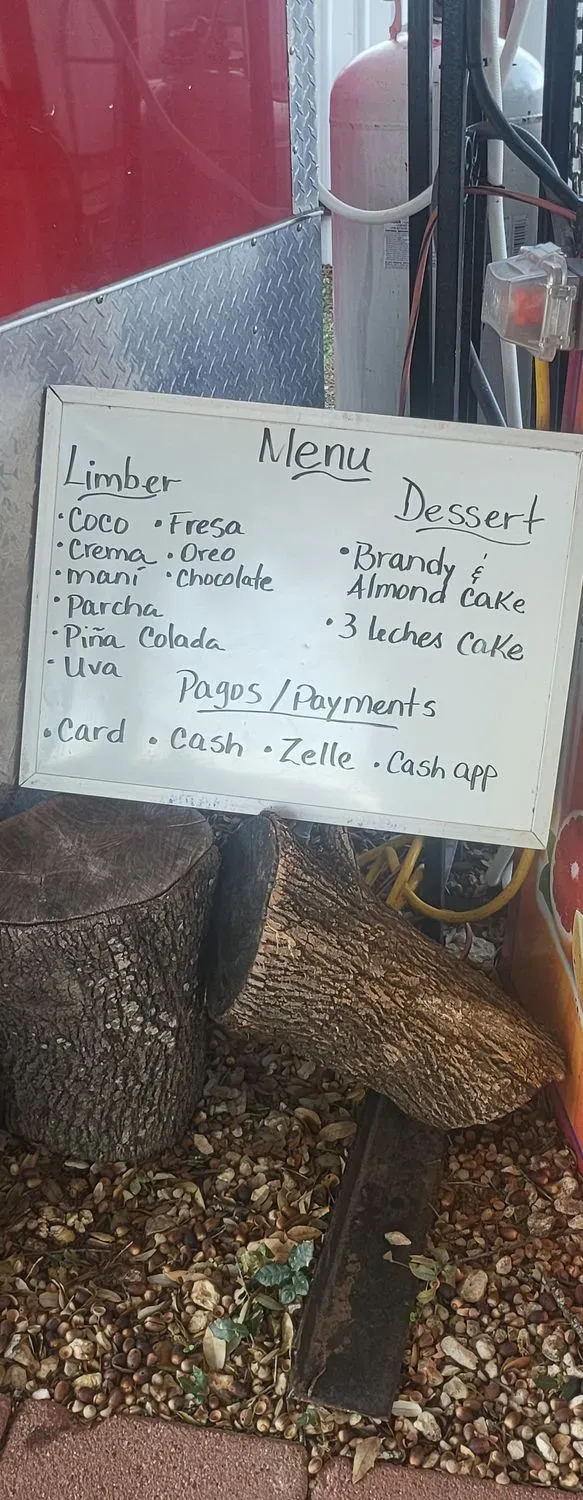 Menu
Limber
• Coco • Fresa
• Crema • Oreo
• maní • Chocolate
• Parcha
• Piña Colada
• Uva
Dessert
• Brandy &
Almond Cake
• 3 leches Cake
Pagos / Payments
• Card • Cash • Zelle • Cash app